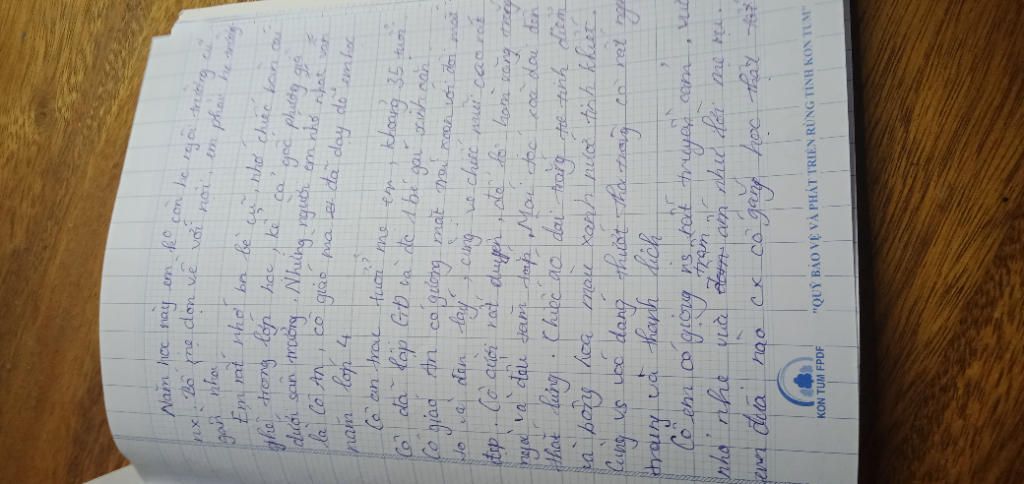 Năm học này em ko còn học ngôi trường cũ
nx. Bố mẹ dọn về với nội, em phải học trường
gần nhà.
Em rất nhớ bạn bè cũ, nhớ chiếc bàn cái
ghế trong lớp học, kể cả gốc phượng già
dưới sân trường. Nhưng người em nhớ nhất vẫn
là cô An, cô giáo mà đã dạy dỗ em học
năm lớp 4.
Cô An trạc tuổi mẹ em, khoảng 35 tuổi.
Cô đã lập GĐ và đc 1 bé gái xinh xắn
Cô giáo An có gương mặt trái xoan với đôi mắt
to và đen láy, cùng vs chiếc mũi cao rất
đẹp. Cô cười rất duyên, để lộ hàm răng trắng
ngà và đều tăm tắp. Mái tóc xoã dài đến
thắt lưng. Chiếc áo dài trắng tô tinh điểm
vài bông hoa màu xanh nước tinh khiết.
Cùng vs vóc dáng thướt tha trông cô rất
trang và thanh lịch.
Cô em có giọng ns rất truyền cảm, vừa
nhỏ nhẹ vừa trầm ấm như lời mẹ ru.
em đứa nào cx cố gắng học thật tốt
KON TUM FPDF
"QUỸ BẢO VỆ VÀ PHÁT TRIỂN RỪNG TỈNH KON TUM"